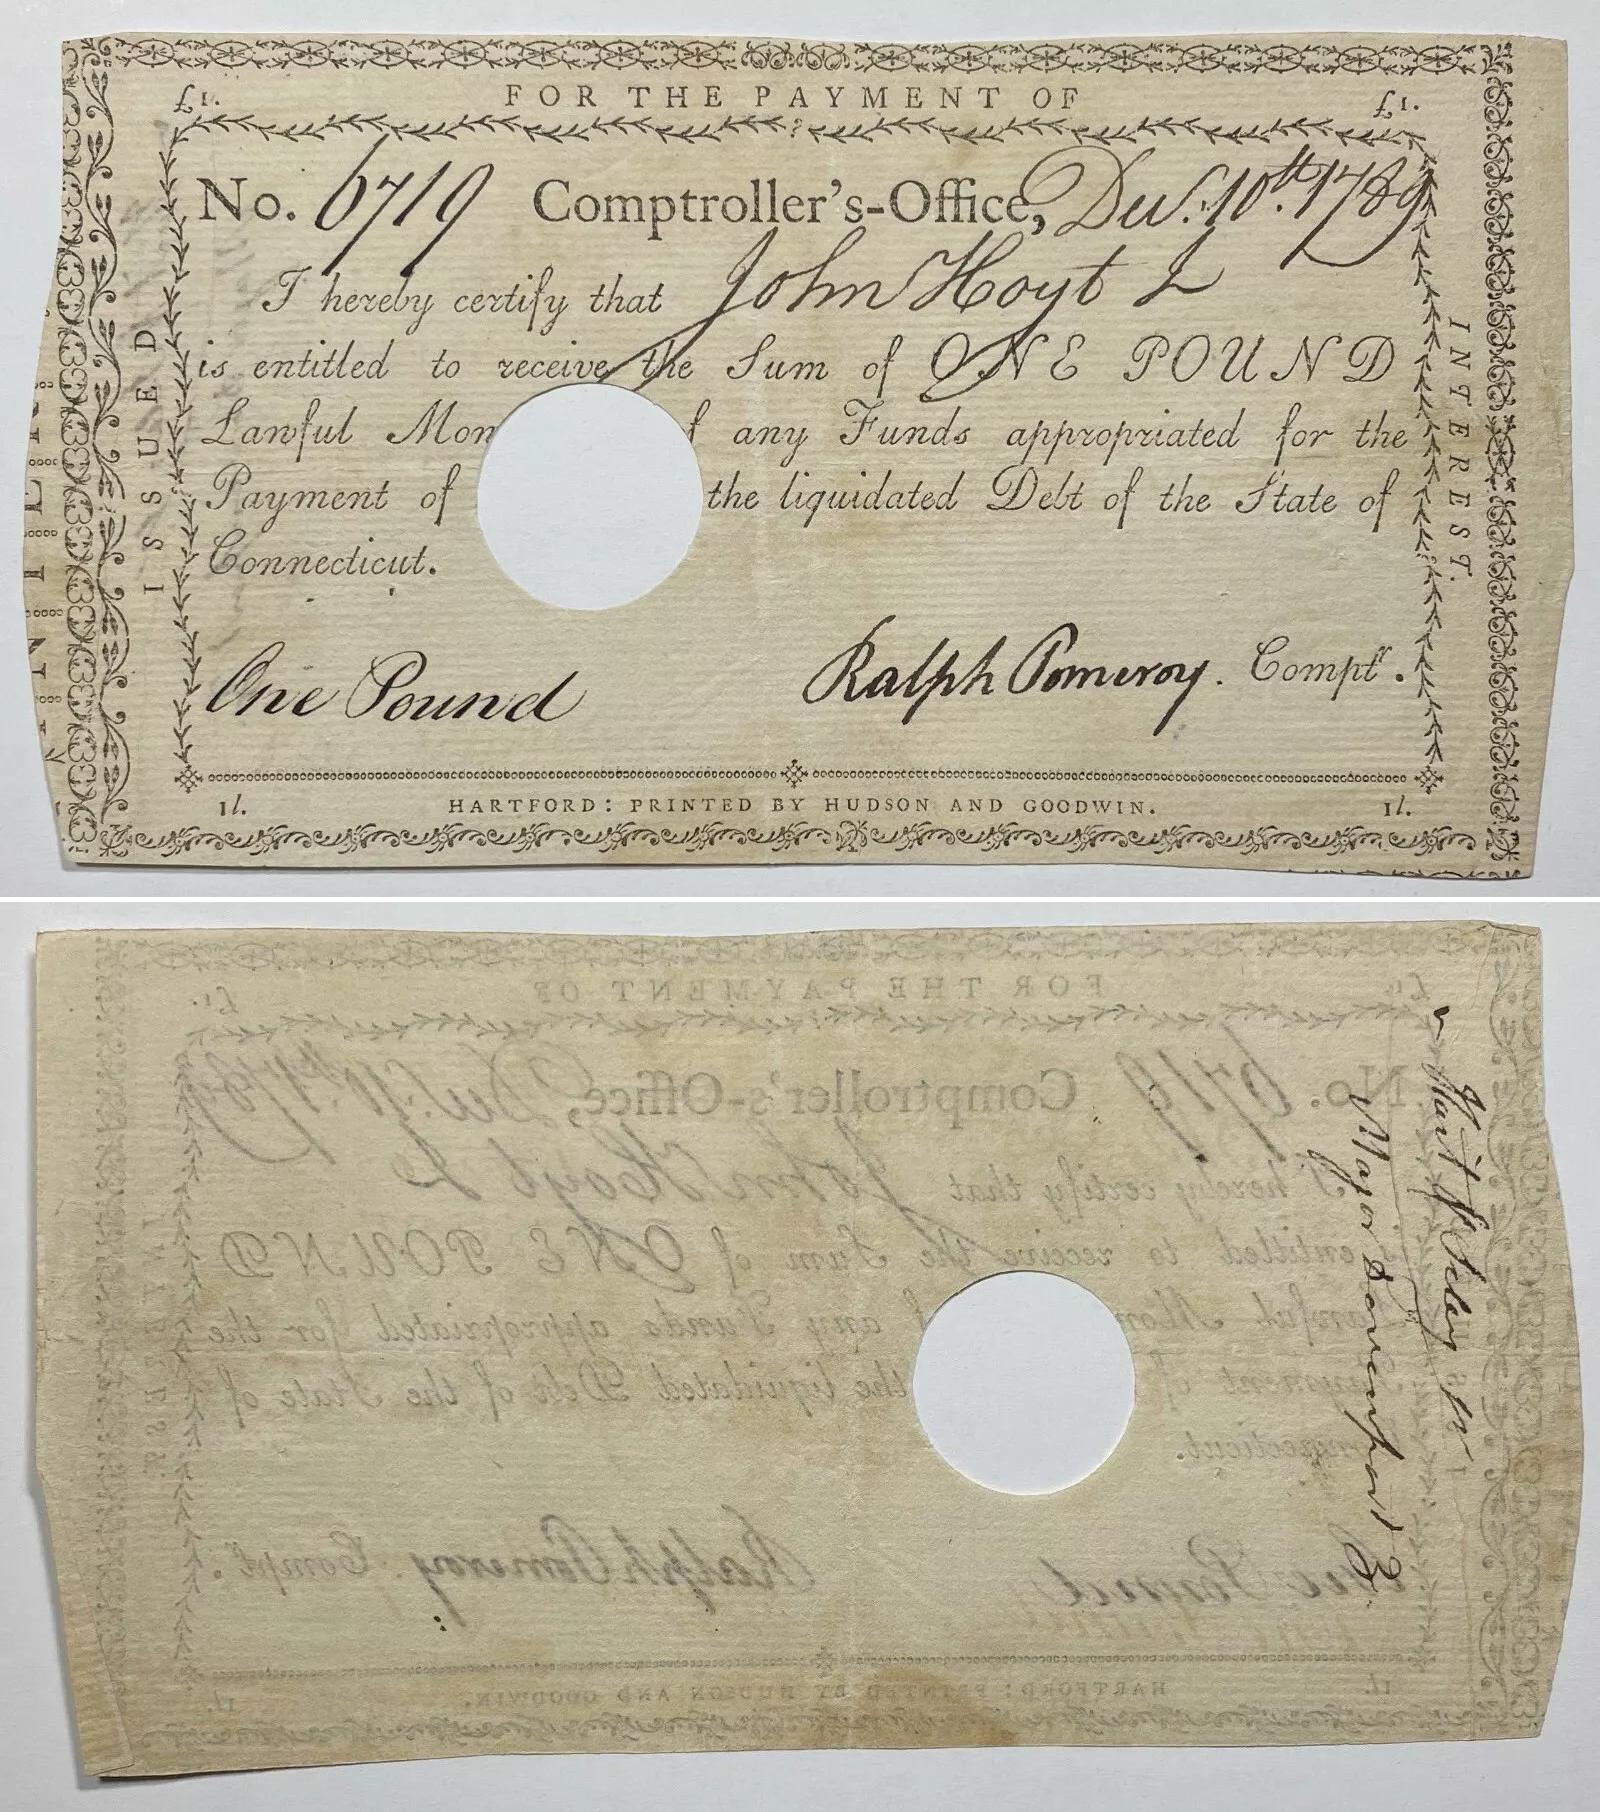 FOR THE PAYMENT OF
£1.
£1.
No. 6719 Comptroller's-Office, Dec. 10th. 1789
I hereby certify that John Hoyt
is entitled to receive the Sum of ONE POUND
Lawful Mon f any Funds appropriated for the
Payment of the liquidated Debt of the State of
Connecticut.
One Pound
Ralph Pomeroy. Comptr.
1l.
HARTFORD: PRINTED BY HUDSON AND GOODWIN.
1l.
ISSUED
INTEREST.
Major Davenport